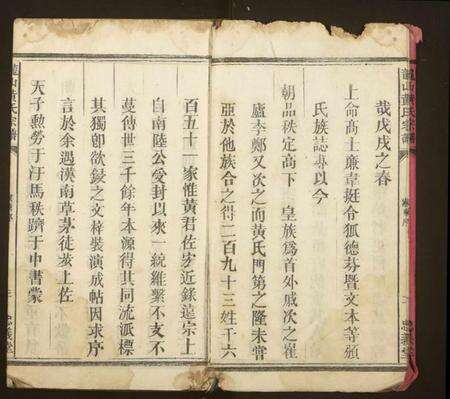 龍山黃氏宗譜
忠義堂
哉戊戌之春
上命高士廉韋挺令狐德棻暨文本等頒
氏族誌專以今
朝品秩定高下 皇族為首外戚次之崔
盧李鄭又次之而黃氏門第之隆未嘗
亞於他族合之得二百九十三姓千六
百五十一家惟黃君佐宏近錄遠宗上
自南陸公受封以來一統維繫不支不
蔓傳世三千餘年本源得其同流派標
其獨卽欲鋟之文梓裝演成帖因求序
言於余遇漢南草茅徒步上佐
天子勳勞于汗馬秩躋于中書蒙
龍山黃氏宗譜
忠義堂